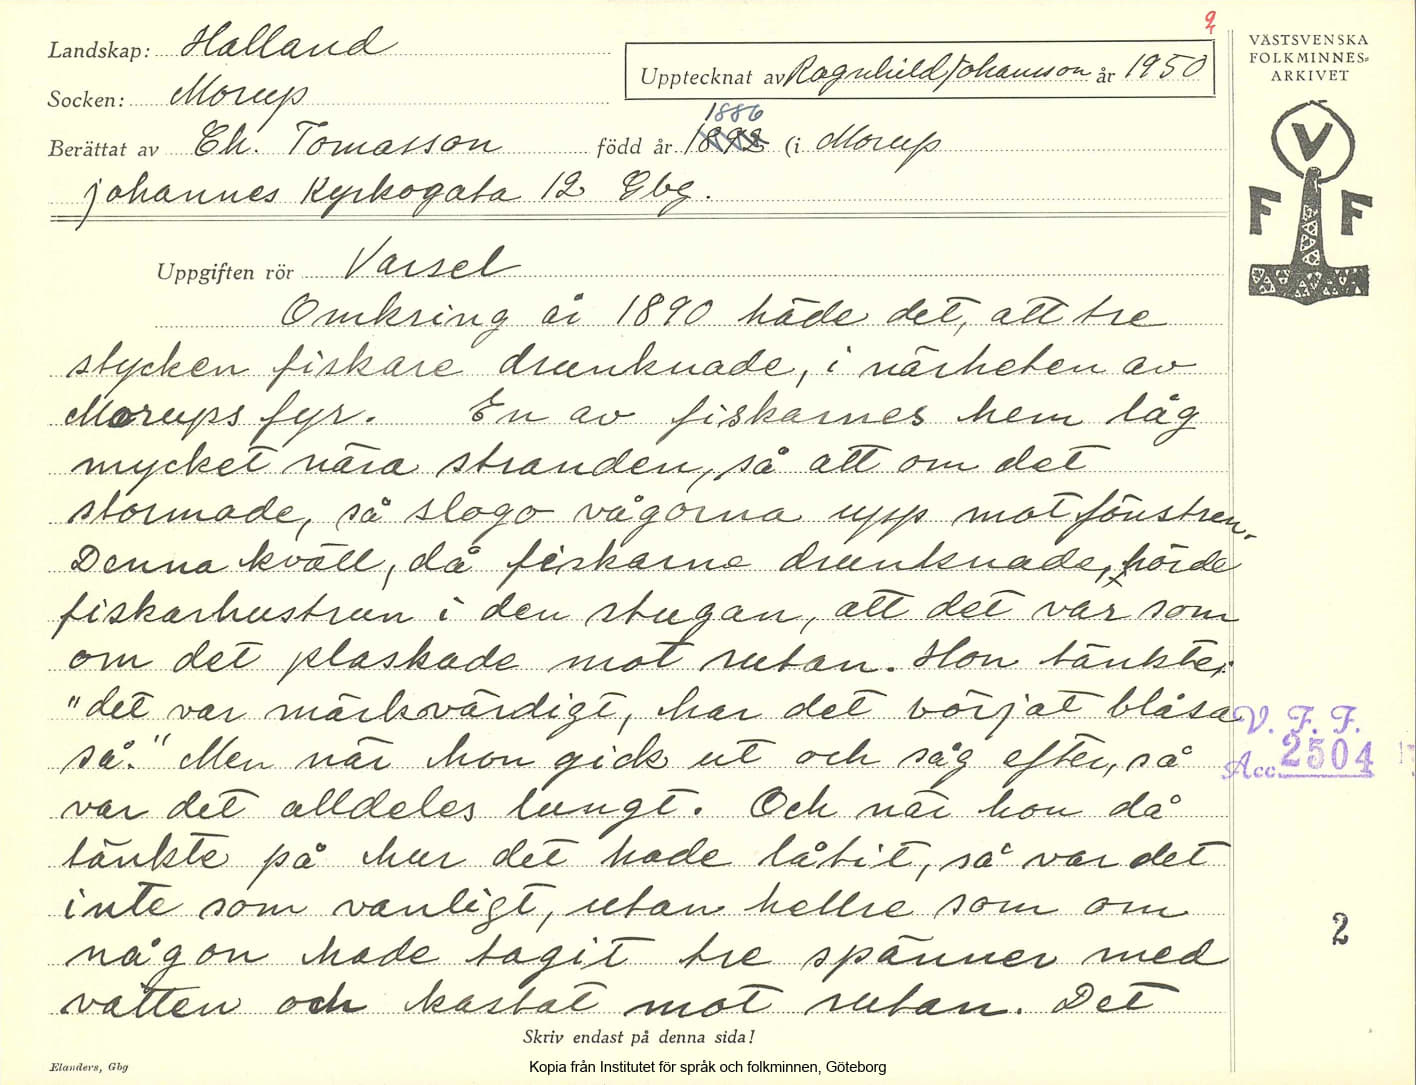 9
Landskap: Halland
Upptecknat av Ragnhild Johansson år 1950
VÄSTSVENSKA
FOLKMINNES-
ARKIVET
Socken: Morup
1886
Berättat av Ch. Tomasson född år 1892 (i Morup
Johannes Kyrkogata 12 Gbg.
V
F F
Uppgiften rör Varsel
Omkring år 1890 hände det, att tre
stycken fiskare drunknade, i närheten av
Morups fyr. En av fiskarnes hem låg
mycket nära stranden, så att om det
stormade, så slogo vågorna upp mot fönstren.
Denna kväll, då fiskarne drunknade, hörde
fiskarhustrun i den stugan, att det var som
om det plaskade mot rutan. Hon tänkte:
"det var märkvärdigt, har det börjat blåsa
så." Men när hon gick ut och såg efter, så
var det alldeles lungt. Och när hon då
tänkte på hur det hade låtit, så var det
inte som vanligt, utan hellre som om
någon hade tagit tre spänner med
vatten och kastat mot rutan. Det
V. F. F.
Acc 2504
2
Skriv endast på denna sida!
Elanders, Gbg
Kopia från Institutet för språk och folkminnen, Göteborg